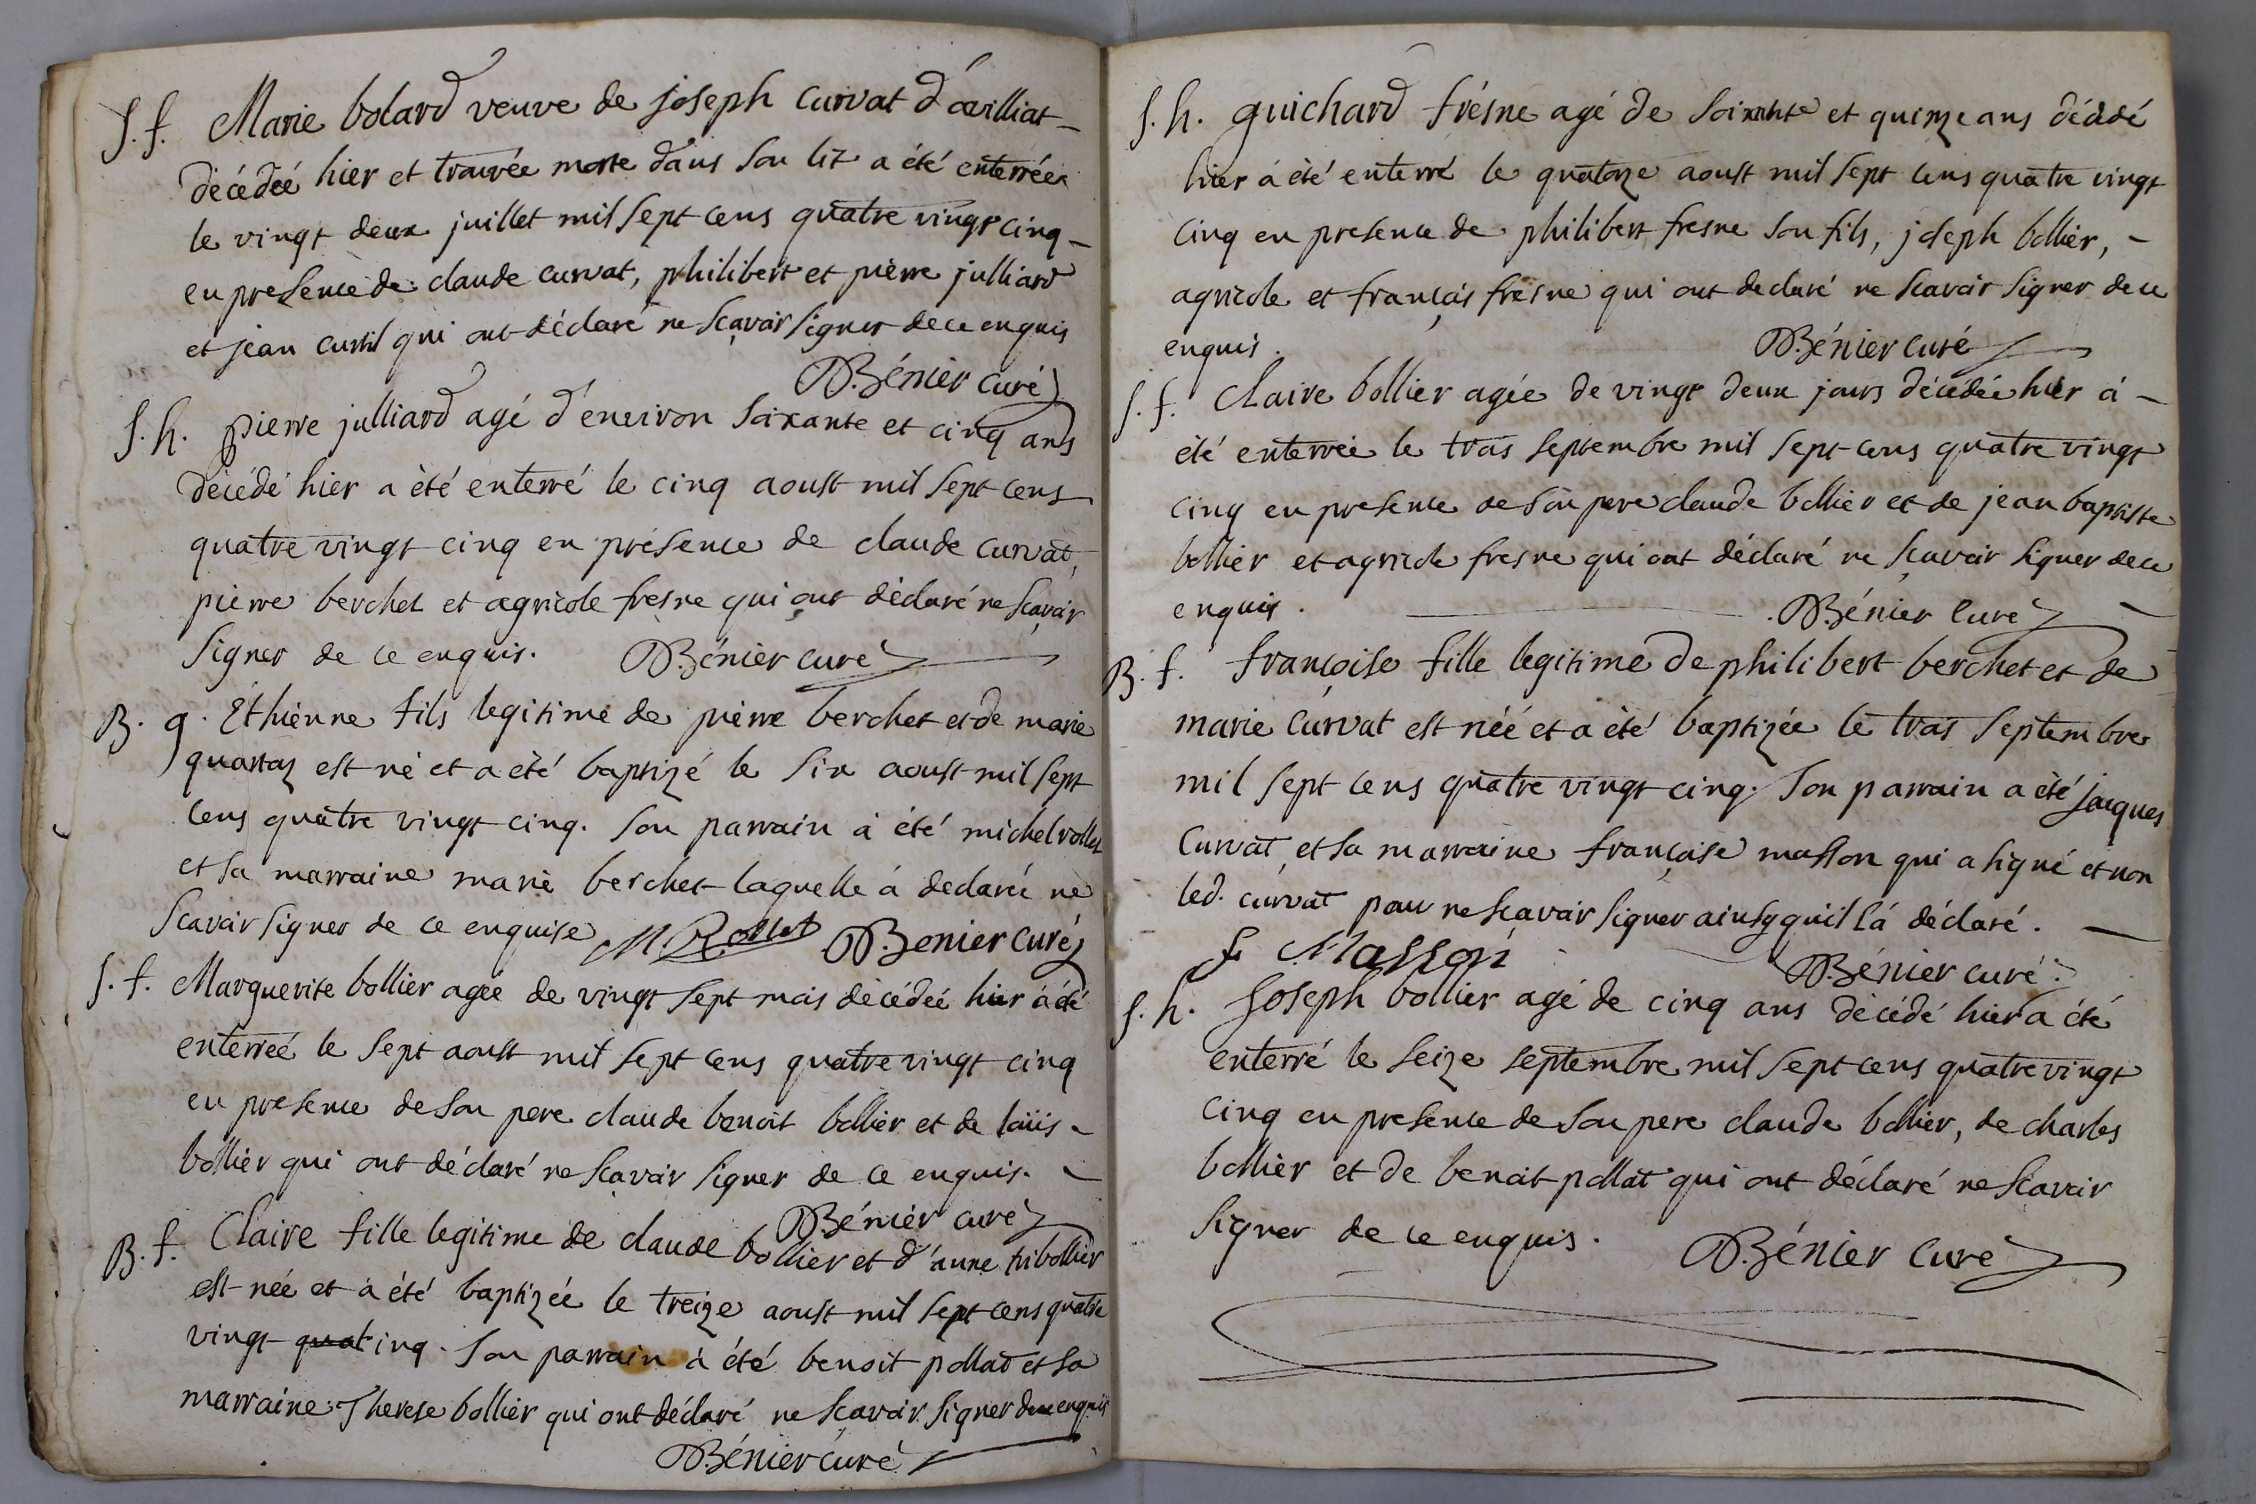 S. f. Marie bolard veuve de joseph curvat d'œvilliat
décédeé hier et trouvée morte dans son lit a été enterrée
le vingt deux juillet mil sept cens quatre vingt cinq
en presence de claude curvat, philibert et pierre julliard
et jean curtil qui ont déclaré ne sçavoir signer de ce enquis
Bénier curé
S. h. pierre julliard agé d'environ soixante et cinq ans
décédé hier a été enterré le cinq aoust mil sept cens
quatre vingt cinq en présence de claude curvat,
pierre berchet et agricole fresne qui ont déclaré ne sçavoir
signer de ce enquis. Bénier curé
B. g. Ethienne fils legitime de pierre berchet et de marie
quartaz est né et a été baptizé le six aoust mil sept
cens quatre vingt cinq. son parrain à été michel rollet
et sa marraine marie berchet laquelle á declaré ne
scavoir signer de ce enquise M Rollet Benier curé
S. f. Marguerite bollier agée de vingt sept mois décédeé hier á été
enterreé le sept aoust mil sept cens quatre vingt cinq
en presence de son pere claude benoit bollier et de loüis
bollier qui ont déclaré ne sçavoir signer de ce enquis.
Bénier curé
B. f. Claire fille legitime de claude bollier et d'anne tribollier
est née et à été baptizée le treize aoust mil sept cens quatre
vingt quatcinq. son parrain à été benoit pollat et sa
marraine Therese bollier qui ont déclaré ne scavoir signer de ce enquis
Bénier curé
S. h. guichard frésne agé de soixante et quinze ans décédé
hier á été enterré le quatorze aoust mil sept cens quatre vingt
cinq en presence de philibert fresne son fils, joseph bollier,
agricole et françois fresne qui ont declaré ne scavoir signer de ce
enquis. Bénier curé
S. f. Claire bollier agée de vingt deux jours décédée hier á
été enterrée le trois septembre mil sept cens quatre vingt
cinq en presence de son pere claude bollier et de jean baptiste
bollier et agricole fresne qui ont déclaré ne sçavoir signer de ce
enquis. Bénier curé
B. f. françoise fille legitime de philibert berchet et de
marie curvat est néé et a été baptizée le trois septembre
mil sept cens quatre vingt cinq. son parrain a été jacques
Curvat, et sa marraine françoise masson qui a signé et non
led. curvat pour ne scavoir signer ainsy quil l'á déclaré.
f Masson Bénier curé
S. h. Joseph bollier agé de cinq ans décédé hier a été
enterré le seize septembre mil sept cens quatre vingt
cinq en presence de son pere claude bollier, de charles
bollier et de benoit pollat qui ont déclaré ne scavoir
signer de ce enquis. Bénier curé